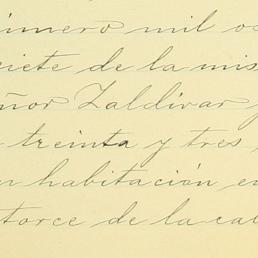 imero mil oc
siete de la mis
eñor Zaldivar y
treinta y tres
habitación en
torce de la cal